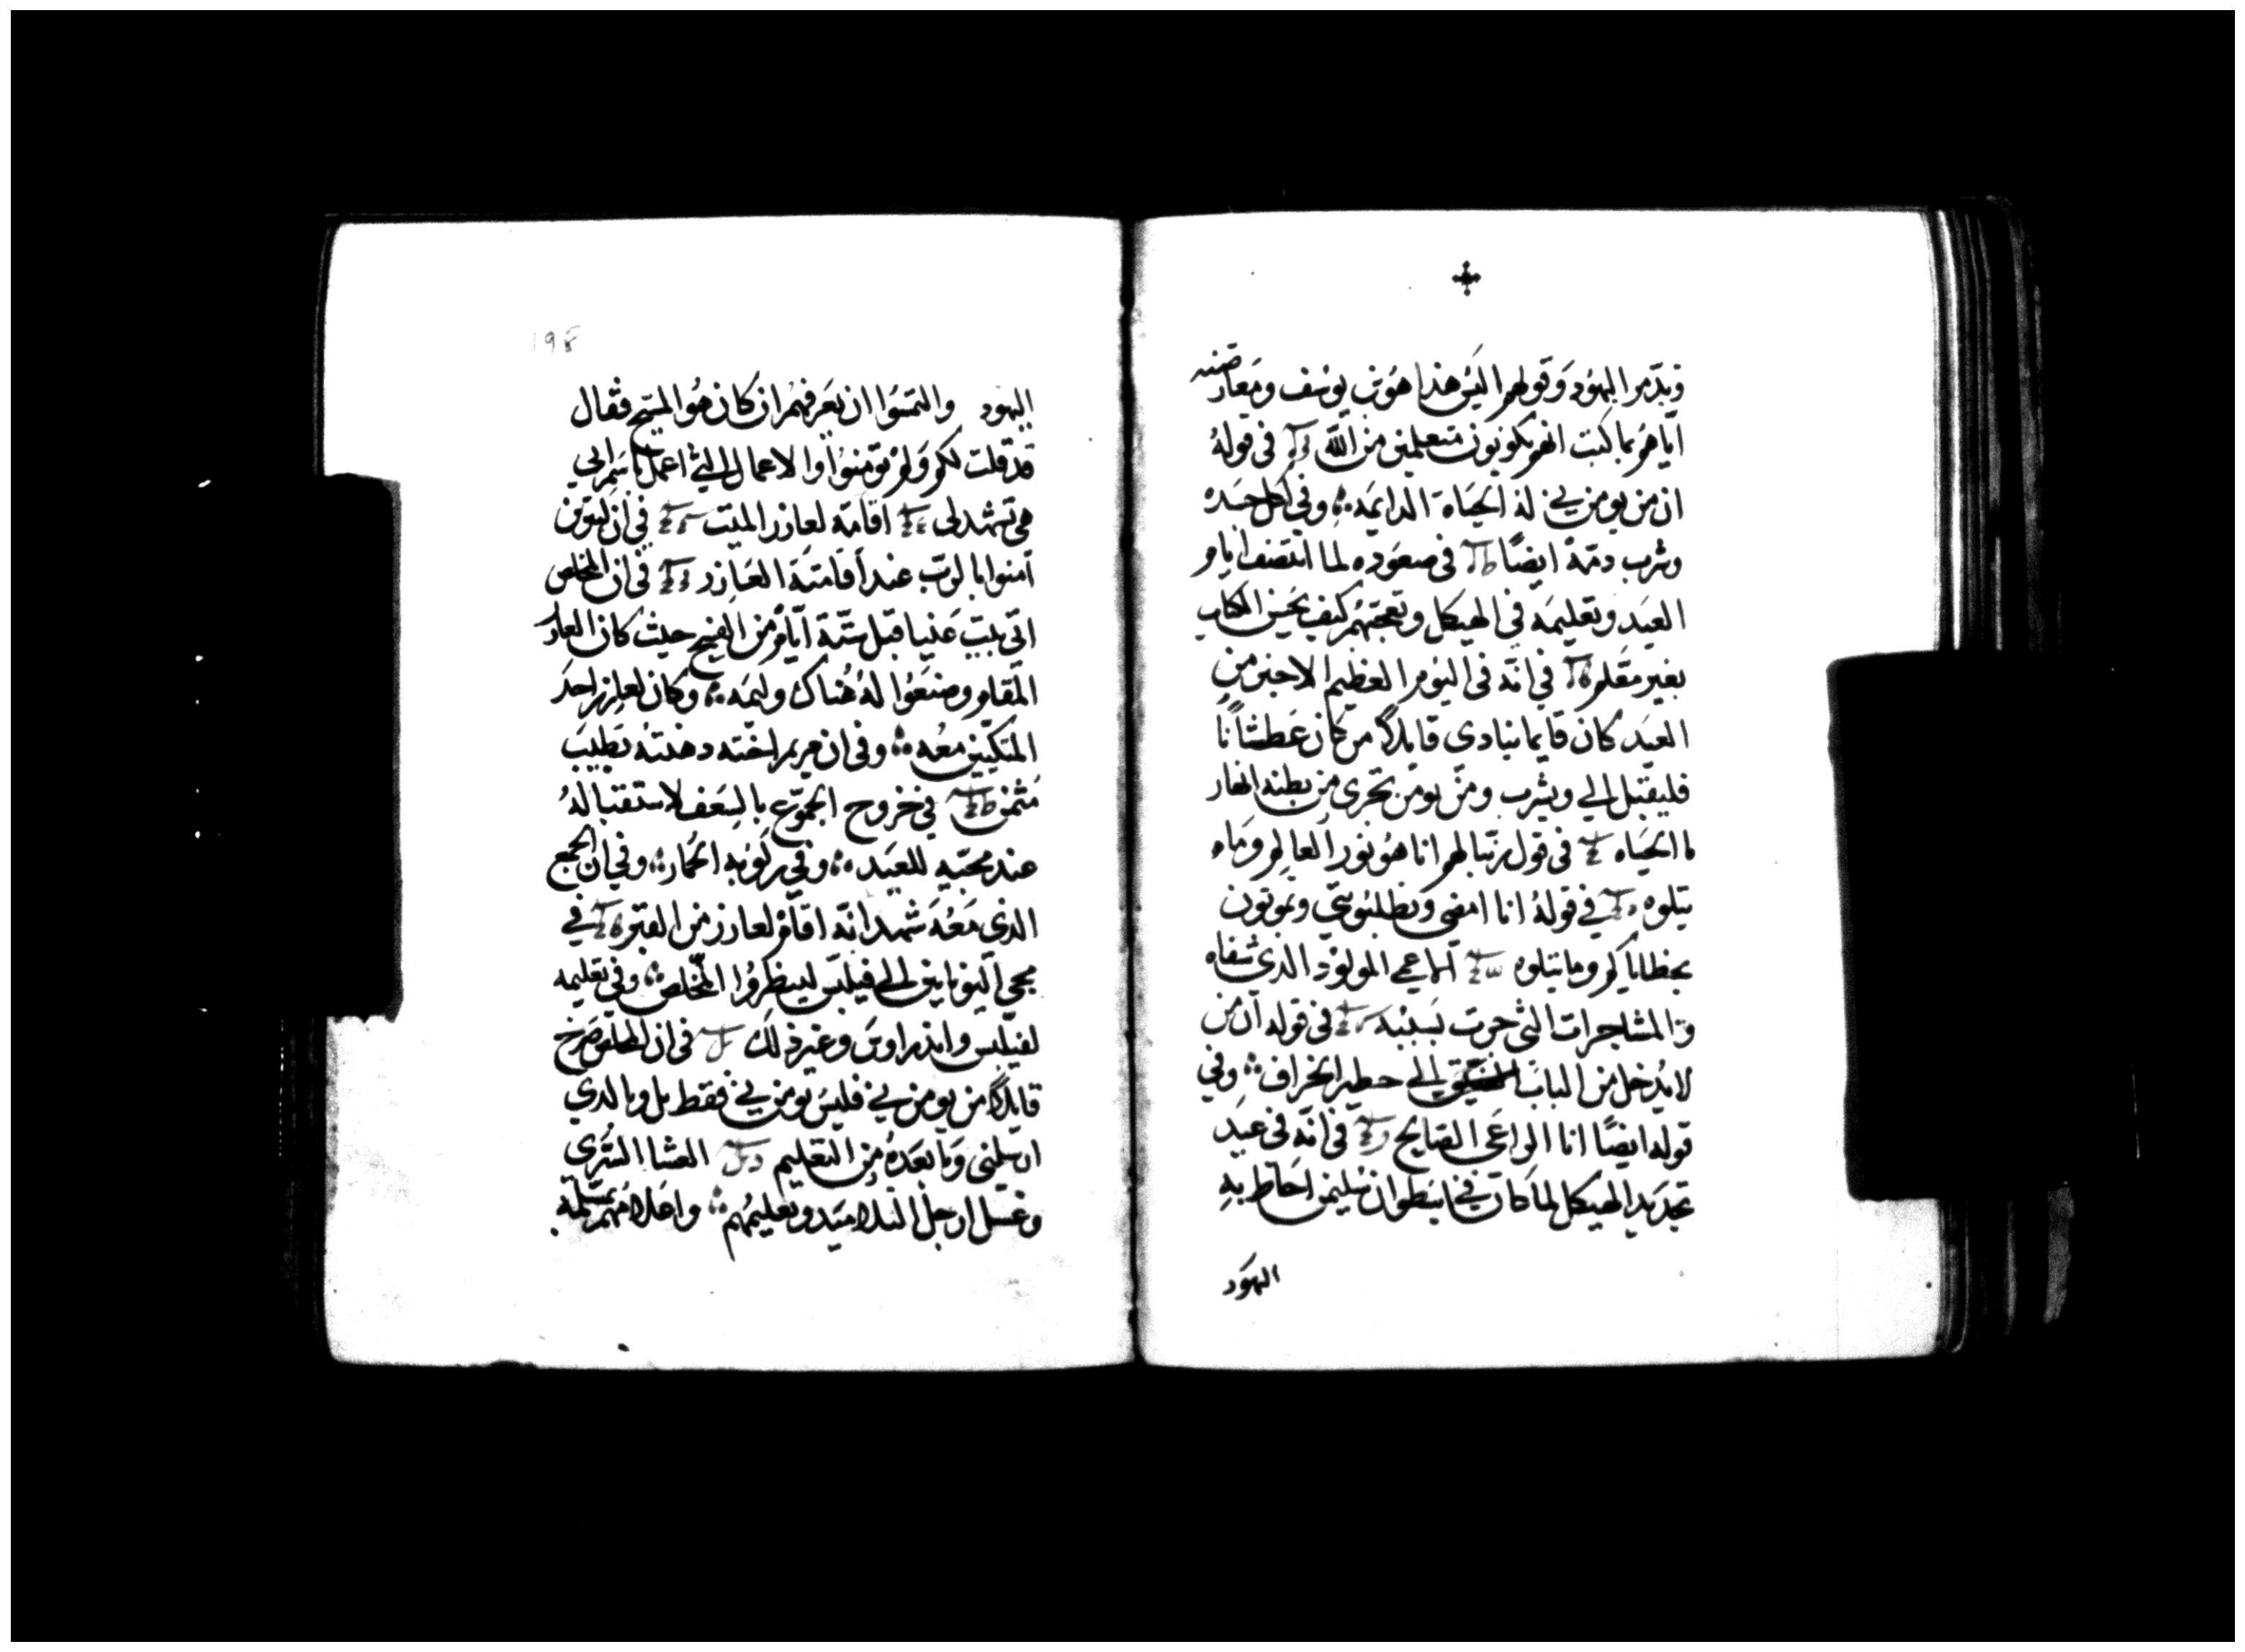 وتدمر اليهود وقولهم اليس هذا هو بن يوسف ومعارضته
اياهم بما كتبت انهم يكونون متعلمين من الله في قوله
ان من يومن بي له الحياه الدايمه وفي اكل جسده
وشرب دمه ايضًا في صعوده لما انتصف ايام
العيد وتعليمه في الهيكل وتعجبهم كيف يحسن الكتاب
بغير معلم في انه في اليوم العظيم الاخير من
العيد كان قايما ينادي قايلاً من كان عطشانًا
فليقبل الي ويشرب ومن يومن تجري من بطنه انهار
ما الحياه في قول ربنا لهم انا هو نور العالم وما
يتلوه في قوله انا امضي وتطلبوني وتموتون
بخطاياكم وما يتلوه الاعمى المولود الذي شفاه
والمشاجرات التي جرت بسببه في قوله ان من
لا يدخل من الباب الي حظير الخراف وفي
قوله ايضًا انا الراعي الصالح في انه في عيد
تجديد الهيكل لما كان في اسطوان سليمن احاط به
اليهود
198
اليهود والتمسوا ان يعرفهم ان كان هو المسيح فقال
قد قلت لكم ولم تومنوا والاعمال التي اعمل باسم ابي
هي تشهد لي اقامة لعازر الميت في ان كثيرين
آمنوا بالرب عند أقامته العازر في ان المخلص
اتي بيت عنيا قبل ستة ايام من الفصح حيث كان العازر
المقام وصنعوا له هناك وليمه وكان لعازر احد
المتكيين معه وفي ان مريم اخته دهنته بطيب
مثمن في خروج الجموع بالسعف لاستقباله
عند مجيه للعيد وفي ركوبه الحمار وفي ان الجمع
الذي معه شهد انه اقام لعازر من القبر في
مجي اليونانيين الي فيلبس لينظروا المخلص وفي تعليمه
لفيلبس واندراوس وغير ذلك في ان المخلص صرخ
قايلاً من يومن بي فليس يومن بي فقط بل وبالذي
ارسلني وما بعده من التعليم العشا السري
وغسل ارجل التلاميد وتعليمهم واعلامهم